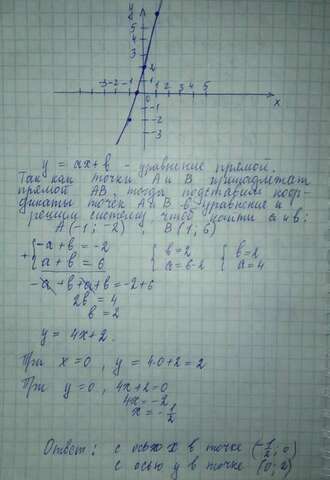 y
5
4
3
2
1
-3 -2 -1 0 1 2 3 4 5 x
-1
-2
-3
y = ax+в - уравнение прямой.
Так как точки А и В принадлежат
прямой АВ, тогда подставим коор-
динаты точек А и В в уравнение и
решим систему, чтоб найти а и в:
A (-1; -2), B (1; 6)
+ {-a + в = -2
{a + в = 6
{в=2
{a=6-2
{в=2
{a=4
-a+в+a+в=-2+6
2в = 4
в = 2
y = 4x+2.
При x=0, y = 4·0+2=2
При y=0, 4x+2=0
4x = -2
x = -1/2
Ответ: с осью x в точке (-1/2, 0)
с осью y в точке (0; 2)